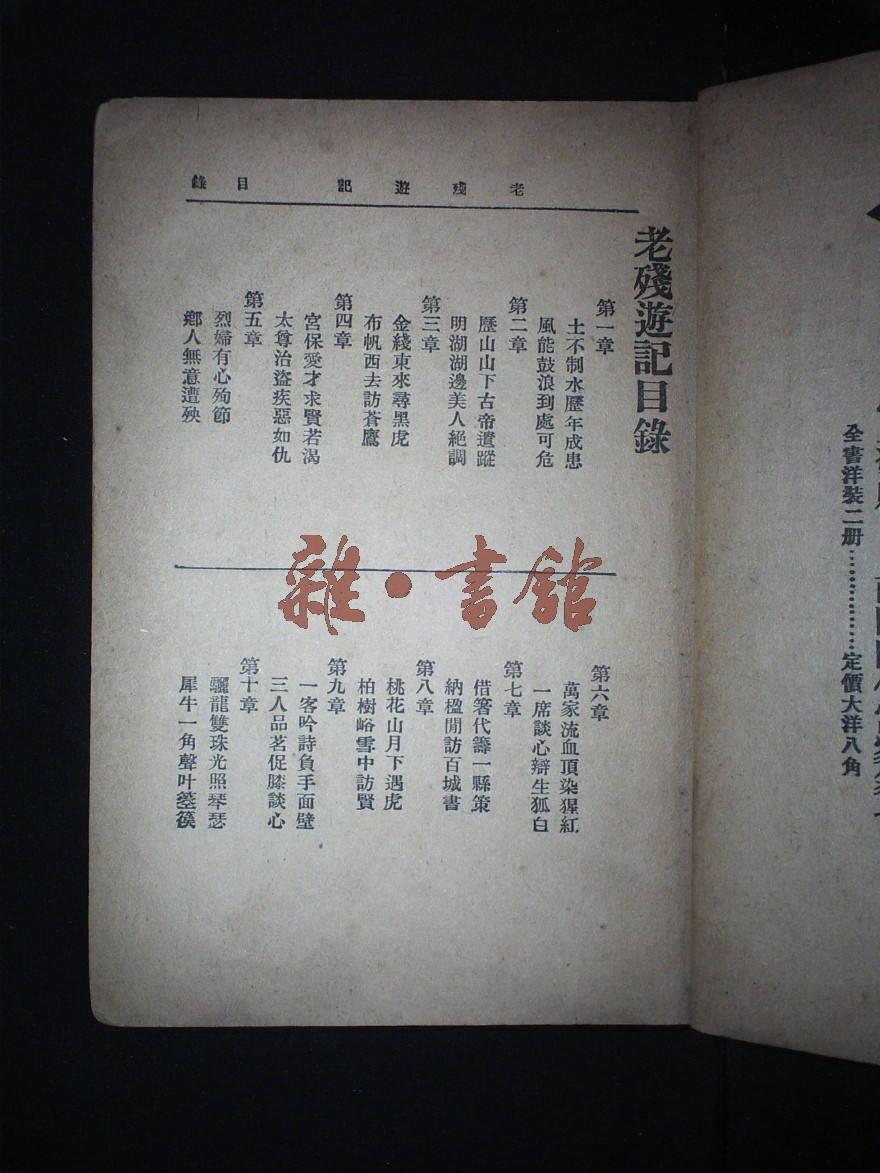 老殘遊記 目錄
老殘遊記目錄
第一章
土不制水歷年成患
風能鼓浪到處可危
第二章
歷山山下古帝遺蹤
明湖湖邊美人絕調
第三章
金綫東來尋黑虎
布帆西去訪蒼鷹
第四章
宮保愛才求賢若渴
太尊治盜疾惡如仇
第五章
烈婦有心殉節
鄉人無意遭殃
第六章
萬家流血頂染猩紅
一席談心辯生狐白
第七章
借箸代籌一縣策
納楹閒訪百城書
第八章
桃花山月下遇虎
柏樹峪雪中訪賢
第九章
一客吟詩負手面壁
三人品茗促膝談心
第十章
驪龍雙珠光照琴瑟
犀牛一角聲叶箜篌
雜·書館
全書洋裝二册………………定價大洋八角